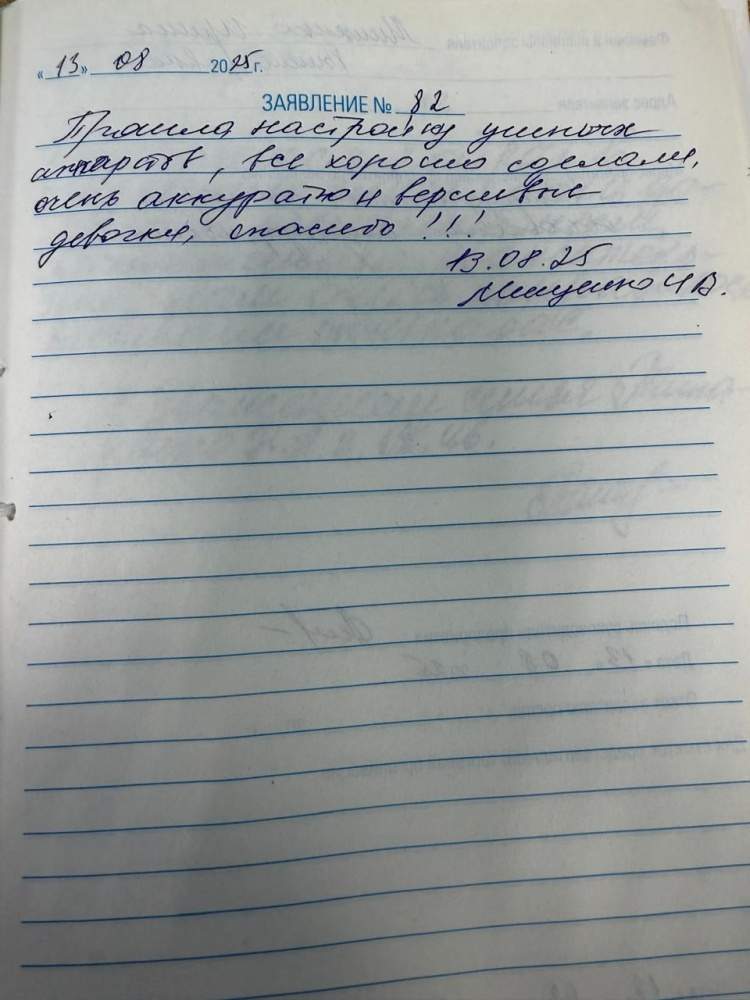 «13» 08 2025 г.
ЗАЯВЛЕНИЕ № 82
Прошла настройку ушных
аппаратов, все хорошо сделали,
очень аккуратно и вежливые
девочки, спасибо!!!
13.08.25
Мищенко И В.